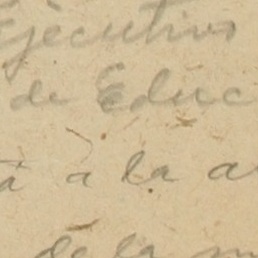 Ejecutivo
de Educ
à la a
de la m